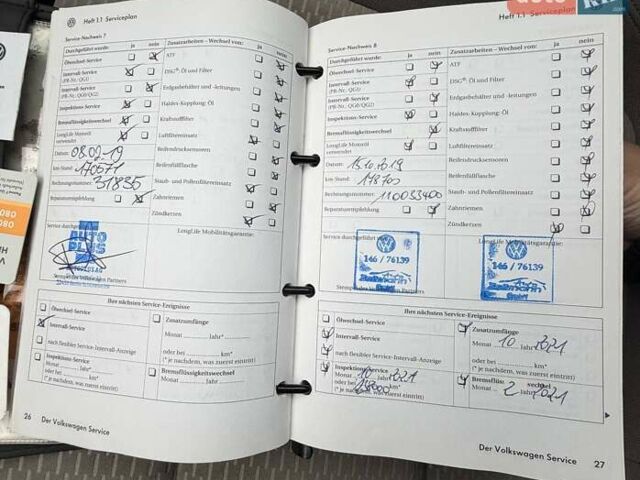 Heft 1.1 Serviceplan
Service-Nachweis 7
Durchgeführt wurde: ja nein
Zusatzarbeiten – Wechsel von: ja nein
Ölwechsel-Service
ATF
Intervall-Service
(PR-Nr.: QG1)
DSG®: Öl und Filter
Intervall-Service
(PR-Nr.: QG0/QG2)
Erdgasbehälter und -leitungen
Inspektions-Service
Haldex-Kupplung: Öl
Bremsflüssigkeitswechsel
Kraftstofffilter
LongLife Motoröl
verwendet
Luftfiltereinsatz
Datum: 08.02.19
Reifendrucksensoren
km-Stand: 170577
Reifenfüllflasche
Rechnungsnummer: 31835
Staub- und Pollenfiltereinsatz
Reparaturempfehlung
Zahnriemen
Zündkerzen
Service durchgeführt
LongLife Mobilitätsgarantie:
AUTO
PLUS
Stempel des Volkswagen Partners
Ihre nächsten Service-Ereignisse
Ölwechsel-Service
Zusatzumfänge
Intervall-Service
Monat Jahr*
nach flexibler Service-Intervall-Anzeige
oder bei km*
(* je nachdem, was zuerst eintritt)
Inspektions-Service
Monat Jahr*
oder bei km*
(* je nachdem, was zuerst eintritt)
Bremsflüssigkeitswechsel
Monat Jahr
26 Der Volkswagen Service
Heft 1.1 Serviceplan
Service-Nachweis 8
Durchgeführt wurde: ja nein
Zusatzarbeiten – Wechsel von: ja nein
Ölwechsel-Service
ATF
Intervall-Service
(PR-Nr.: QG1)
DSG®: Öl und Filter
Intervall-Service
(PR-Nr.: QG0/QG2)
Erdgasbehälter und -leitungen
Inspektions-Service
Haldex-Kupplung: Öl
Bremsflüssigkeitswechsel
Kraftstofffilter
LongLife Motoröl
verwendet
Luftfiltereinsatz
Datum: 15.10.2019
Reifendrucksensoren
km-Stand: 178700
Reifenfüllflasche
Rechnungsnummer: 110033400
Staub- und Pollenfiltereinsatz
Reparaturempfehlung
Zahnriemen
Zündkerzen
Service durchgeführt
LongLife Mobilitätsgarantie:
146 / 76139
146 / 76139
Stempel des Volkswagen Partners
Ihre nächsten Service-Ereignisse
Ölwechsel-Service
Zusatzumfänge
Intervall-Service
Monat 10 Jahr 2021
nach flexibler Service-Intervall-Anzeige
oder bei km*
(* je nachdem, was zuerst eintritt)
Inspektions-Service
Monat 10 2021
oder bei km*
(* je nachdem, was zuerst eintritt)
Monat 2 Jahr 2021
Der Volkswagen Service 27